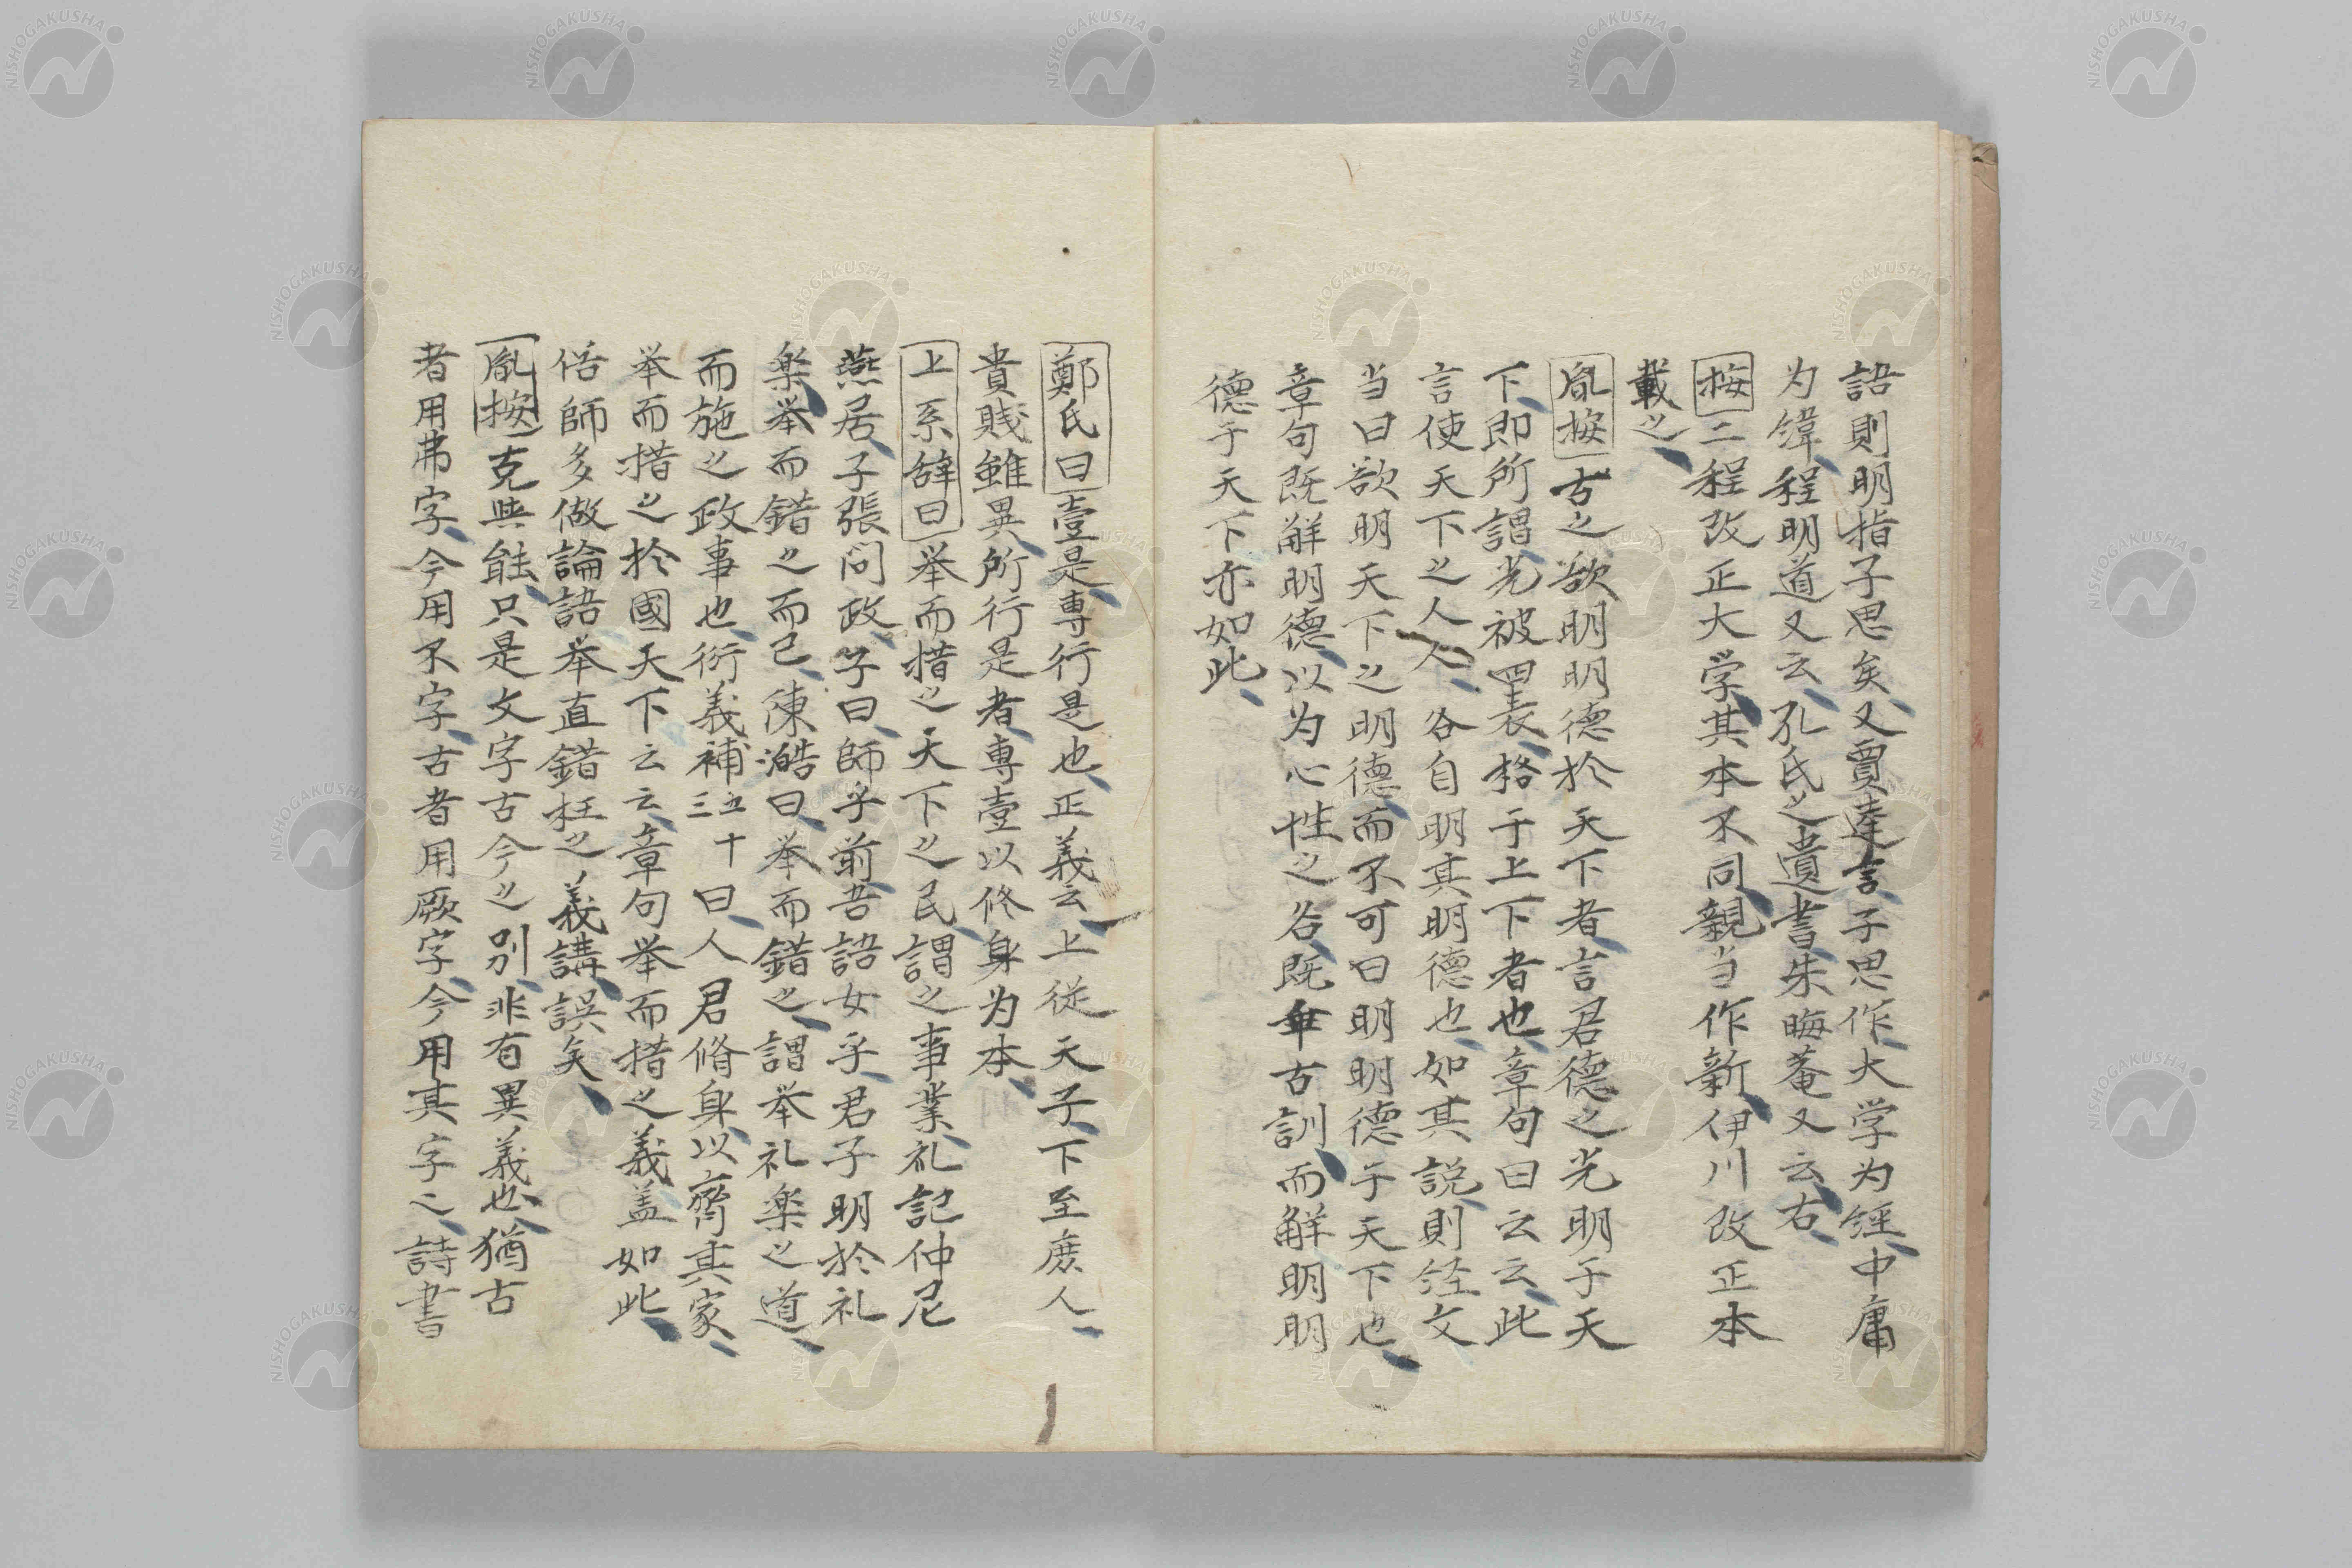 語則明指子思矣又賈逵言子思作大学为經中庸
为緯程明道又云孔氏之遺書朱晦菴又云右
按二程改正大学其本不同親当作新伊川改正本
載之
胤按古之欲明明德於天下者言君德之光明于天
下即所謂光被四表格于上下者也章句曰云云此
言使天下之人人各自明其明德也如其説則経文
当曰欲明天下之明德而不可曰明明德于天下也
章句既解明德以为心性之名既乖古訓而解明明
德于天下亦如此
鄭氏曰壹是專行是也正義云上從天子下至庶人
貴賤雖異所行是者專壹以修身为本
上系辞曰举而措之天下之民謂之事業礼記仲尼
燕居子張問政子曰師乎前吾語女乎君子明於礼
楽举而錯之而已陳澔曰举而錯之謂举礼楽之道
而施之政事也衍義補五十三曰人君脩身以齊其家
举而措之於國天下云云章句举而措之義盖如此
俗師多做論語举直錯枉之義講誤矣
胤按克與能只是文字古今之別非有異義也猶古
者用弗字今用不字古者用厥字今用其字之詩書